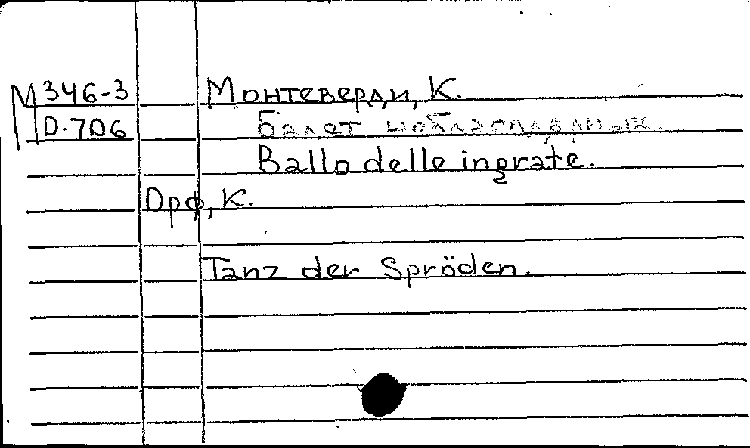 М 346-3 Монтеверди, К.
D-706 Балет неблагодарных.
Ballo delle ingrate.
Орф, К.
Tanz der Spröden.